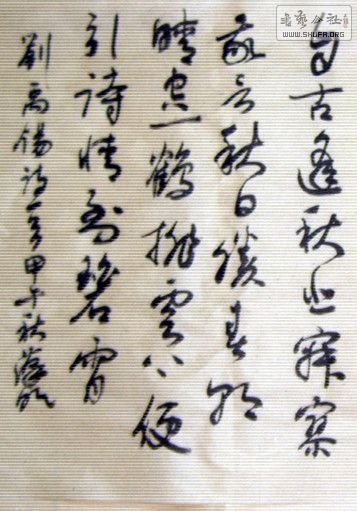 書藝公社
WWW.SHUFA.ORG
自古逢秋悲寂寥
我言秋日勝春朝
晴空一鶴排雲上便
引詩情到碧霄
劉禹錫詩一首甲午秋